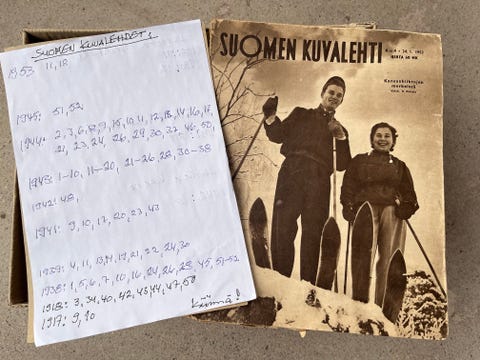 SUOMEN KUVALEHDET:
1953 11, 12
1945: 51, 52
1944: 2, 3, 6, 8, 9, 10, 11, 12, 13, 14, 16, 18,
21, 23, 24, 26, 29, 30, 37, 46, 50,
1943: 1-10, 11-20, 21-26, 28, 30-38
1942: 48,
1941: 9, 10, 17, 20, 23, 43
1939: 4, 11, 13, 14, 19, 21, 22, 24, 30
1938: 1, 5, 6, 7, 10, 16, 24, 26, 28, 45, 51-52
1918: 3, 34, 40, 42, 43, 44, 47, 50
1917: 9, 10
Käännä!
SUOMEN KUVALEHTI
HINTA 60 MK